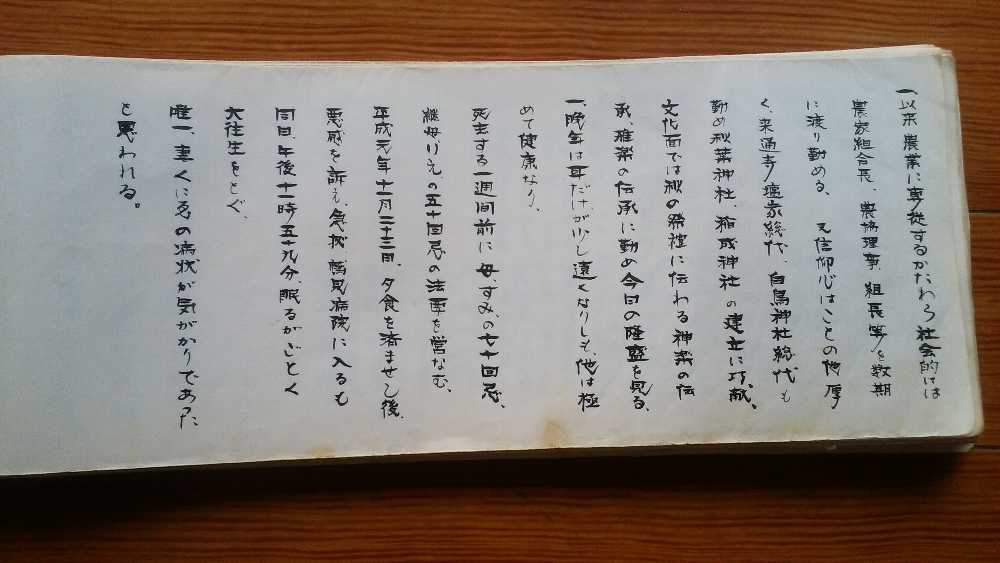 一、以来農業に専従するかたわら社会的には
農家組合長、農協理事、組長等を数期
に渡り勤める。又信仰心はことの他厚
く、来通寺檀家総代、白鳥神社総代も
勤め秋葉神社、稲成神社の建立に巧献、
文化面では秋の祭禮に伝わる神楽の伝
承、雅楽の伝承に勤め今日の隆盛を見る、
一、晩年は耳だけが少し遠くなりしも、他は極
めて健康なり、
死去する一週間前に母、すみ、の七十回忌、
継母りえの五十回忌の法要を営なむ、
平成元年十一月二十三日、夕食を済ませし後、
悪感を訴え、急拠鶴見病院に入るも
同日、午後十一時五十九分、眠るがごとく
大往生をとぐ、
唯一、妻くにゑの病状が気がかりであった
と思われる。